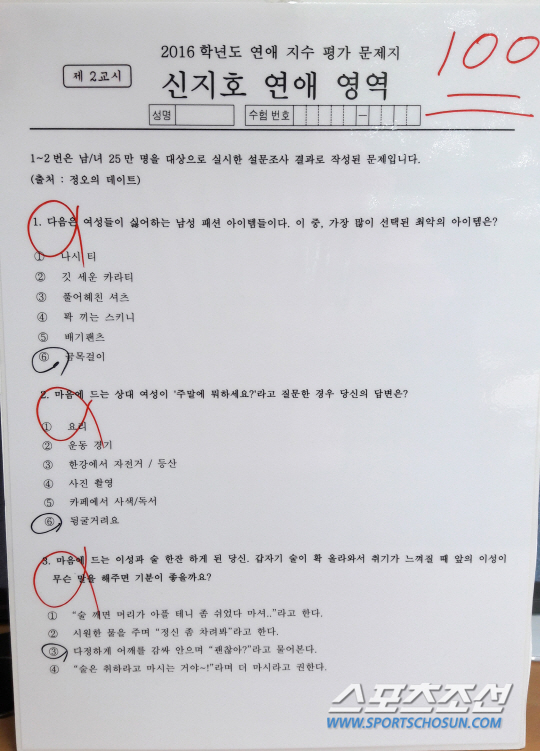 2016 학년도 연애 지수 평가 문제지
100
제 2교시
신지호 연애 영역
성명
수험 번호
—
1~2 번은 남/녀 25 만 명을 대상으로 실시한 설문조사 결과로 작성된 문제입니다.
(출처 : 정오의 데이트)
1. 다음은 여성들이 싫어하는 남성 패션 아이템들이다. 이 중, 가장 많이 선택된 최악의 아이템은?
① 나시 티
② 깃 세운 카라티
③ 풀어헤친 셔츠
④ 꽉 끼는 스키니
⑤ 배기팬츠
⑥ 금목걸이
2. 마음에 드는 상대 여성이 '주말에 뭐하세요?'라고 질문한 경우 당신의 답변은?
① 요리
② 운동 경기
③ 한강에서 자전거 / 등산
④ 사진 촬영
⑤ 카페에서 사색/독서
⑥ 뒹굴거려요
3. 마음에 드는 이성과 술 한잔 하게 된 당신. 갑자기 술이 확 올라와서 취기가 느껴질 때 앞의 이성이
무슨 말을 해주면 기분이 좋을까요?
① “술 깨면 머리가 아플 테니 좀 쉬었다 마셔..”라고 한다.
② 시원한 물을 주며 “정신 좀 차려봐”라고 한다.
③ 다정하게 어깨를 감싸 안으며 “괜찮아?”라고 물어본다.
④ “술은 취하라고 마시는 거야~!”라며 더 마시라고 권한다.
스포츠조선
WWW.SPORTSCHOSUN.COM